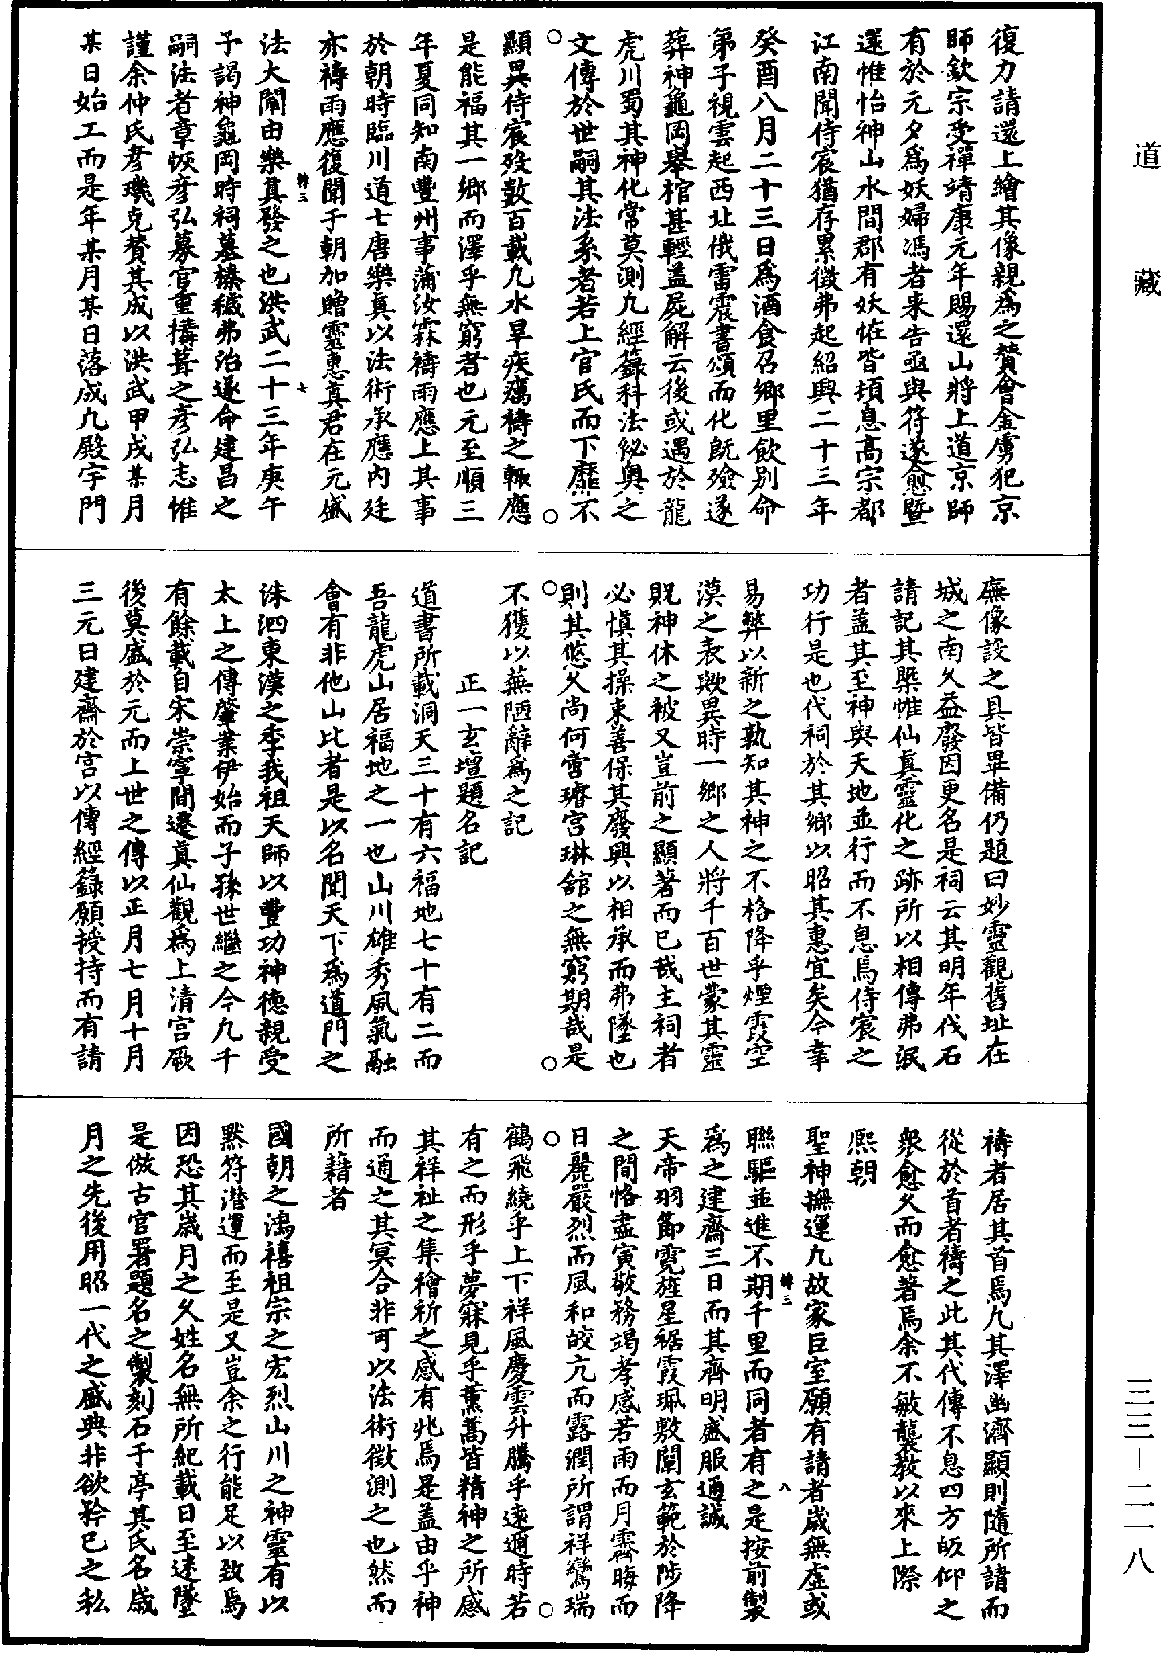 道藏
復力請還上繪其像親爲之贊會金虜犯京
師欽宗受禪靖康元年賜還山將上道京師
有於元夕爲妖婦馮者來告亟與符遂愈暨
還惟怡神山水間郡有妖怪皆頃息高宗都
江南聞侍宸猶存累徵弗起紹興二十三年
癸酉八月二十三日爲酒食召鄉里飲別命
弟子視雲起西址俄雷震書頌而化旣殮遂
葬神龜岡舉棺甚輕蓋屍解云後或遇於龍
虎川蜀其神化常莫測凡經籙科法秘奥之
文傳於世嗣其法系者若上官氏而下靡不
顯異侍宸殁數百載凡水旱疾癘禱之輒應
是能福其一鄉而澤乎無窮者也元至順三
年夏同知南豐州事蒲汝霖禱雨應上其事
於朝時臨川道士唐樂真以法術承應內廷
亦禱雨應復聞于朝加贈靈惠真君在元盛
法大闡由樂真發之也洪武二十三年庚午
予謁神龜岡時祠墓榛穢弗治遂命建昌之
嗣法者章恢彥弘募官重構葺之彥弘志惟
謹余仲氏彥璣克賛其成以洪武甲戌某月
某日始工而是年某月某日落成凡殿宇門
廡像設之具皆畢備仍題曰妙靈觀舊址在
城之南久益廢因更名是祠云其明年伐石
請記其槩惟仙真靈化之跡所以相傳弗泯
者蓋其至神與天地並行而不息焉侍宸之
功行是也代祠於其鄉以昭其惠宜矣今幸
易弊以新之孰知其神之不格降乎煙霞空
漠之表歟異時一鄉之人將千百世蒙其靈
貺神休之被又豈前之顯著而已哉主祠者
必慎其操束善保其廢興以相承而弗墜也
則其悠久尚何啻琳宮琳舘之無窮期哉是
不獲以蕪陋辭爲之記
正一玄壇題名記
道書所載洞天三十有六福地七十有二而
吾龍虎山居福地之一也山川雄秀風氣融
會有非他山比者是以名聞天下爲道門之
洙泗東漢之季我祖天師以豐功神德親受
太上之傳肇業伊始而子孫世繼之今九千
有餘載自宋崇寧間遷真仙觀爲上清宮厥
後莫盛於元而上世之傳以正月七月十月
三元日建齋於宮以傳經籙願授持而有請
禱者居其首焉凡其澤幽濟顯則隨所請而
從於首者禱之此其代傳不息四方皈仰之
衆愈久而愈著焉余不敏襲教以來上際
熙朝
聖神撫運凡故家巨室願有請者歲無虛或
聯驅並進不期千里而同者有之是按前製
爲之建齋三日而其齊明盛服通誠
天帝羽節霓旌星裾霞珮敷闡玄範於陟降
之間恪盡寅敬務竭孝感若雨而月霽晦而
日麗嚴烈而風和皎亢而露潤所謂祥鸞瑞
鶴飛繞乎上下祥風慶雲升騰乎遠邇時若
有之而形乎夢寐見乎薰蒿皆精神之所感
其祥祉之集禬祈之感有兆焉是蓋由乎神
而通之其冥合非可以法術徵測之也然而
所藉者
國朝之鴻禧祖宗之宏烈山川之神靈有以
黙符潛運而至是又豈余之行能足以致焉
因恐其歲月之久姓名無所紀載日至遠墜
是倣古官署題名之製刻石于亭其氏名歲
月之先後用昭一代之盛典非欲矜已之私
三三—二一八